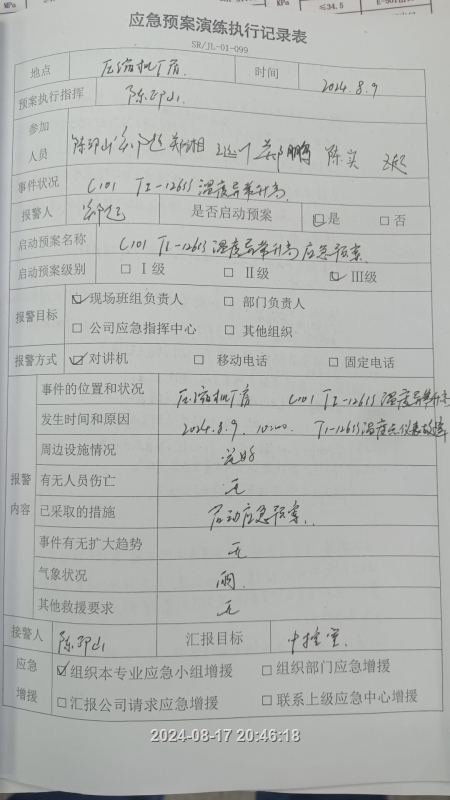 MPa KPa ≤34.5
应急预案演练执行记录表
SR/JL-01-099
地点 压缩机厂房 时间 2024.8.9
预案执行指挥 陈邵山
参加人员 陈邵山 郑湘 陈实
事件状况 C101 TI-12615 温度异常升高
报警人 是否启动预案 ☑是 □否
启动预案名称 C101 TI-12615 温度异常升高应急预案
启动预案级别 □Ⅰ级 □Ⅱ级 ☑Ⅲ级
报警目标 ☑现场班组负责人 □部门负责人
□公司应急指挥中心 □其他组织
报警方式 ☑对讲机 □移动电话 □固定电话
报警内容 事件的位置和状况 压缩机厂房 C101 TI-12615 温度异常升高
发生时间和原因 2024.8.9. 10:00 TI-12615温度点仪表故障
周边设施情况 完好
有无人员伤亡 无
已采取的措施 启动应急预案
事件有无扩大趋势 无
气象状况 雨
其他救援要求 无
接警人 陈邵山 汇报目标 中控室
应急增援 ☑组织本专业应急小组增援 □组织部门应急增援
□汇报公司请求应急增援 □联系上级应急中心增援
2024-08-17 20:46:18